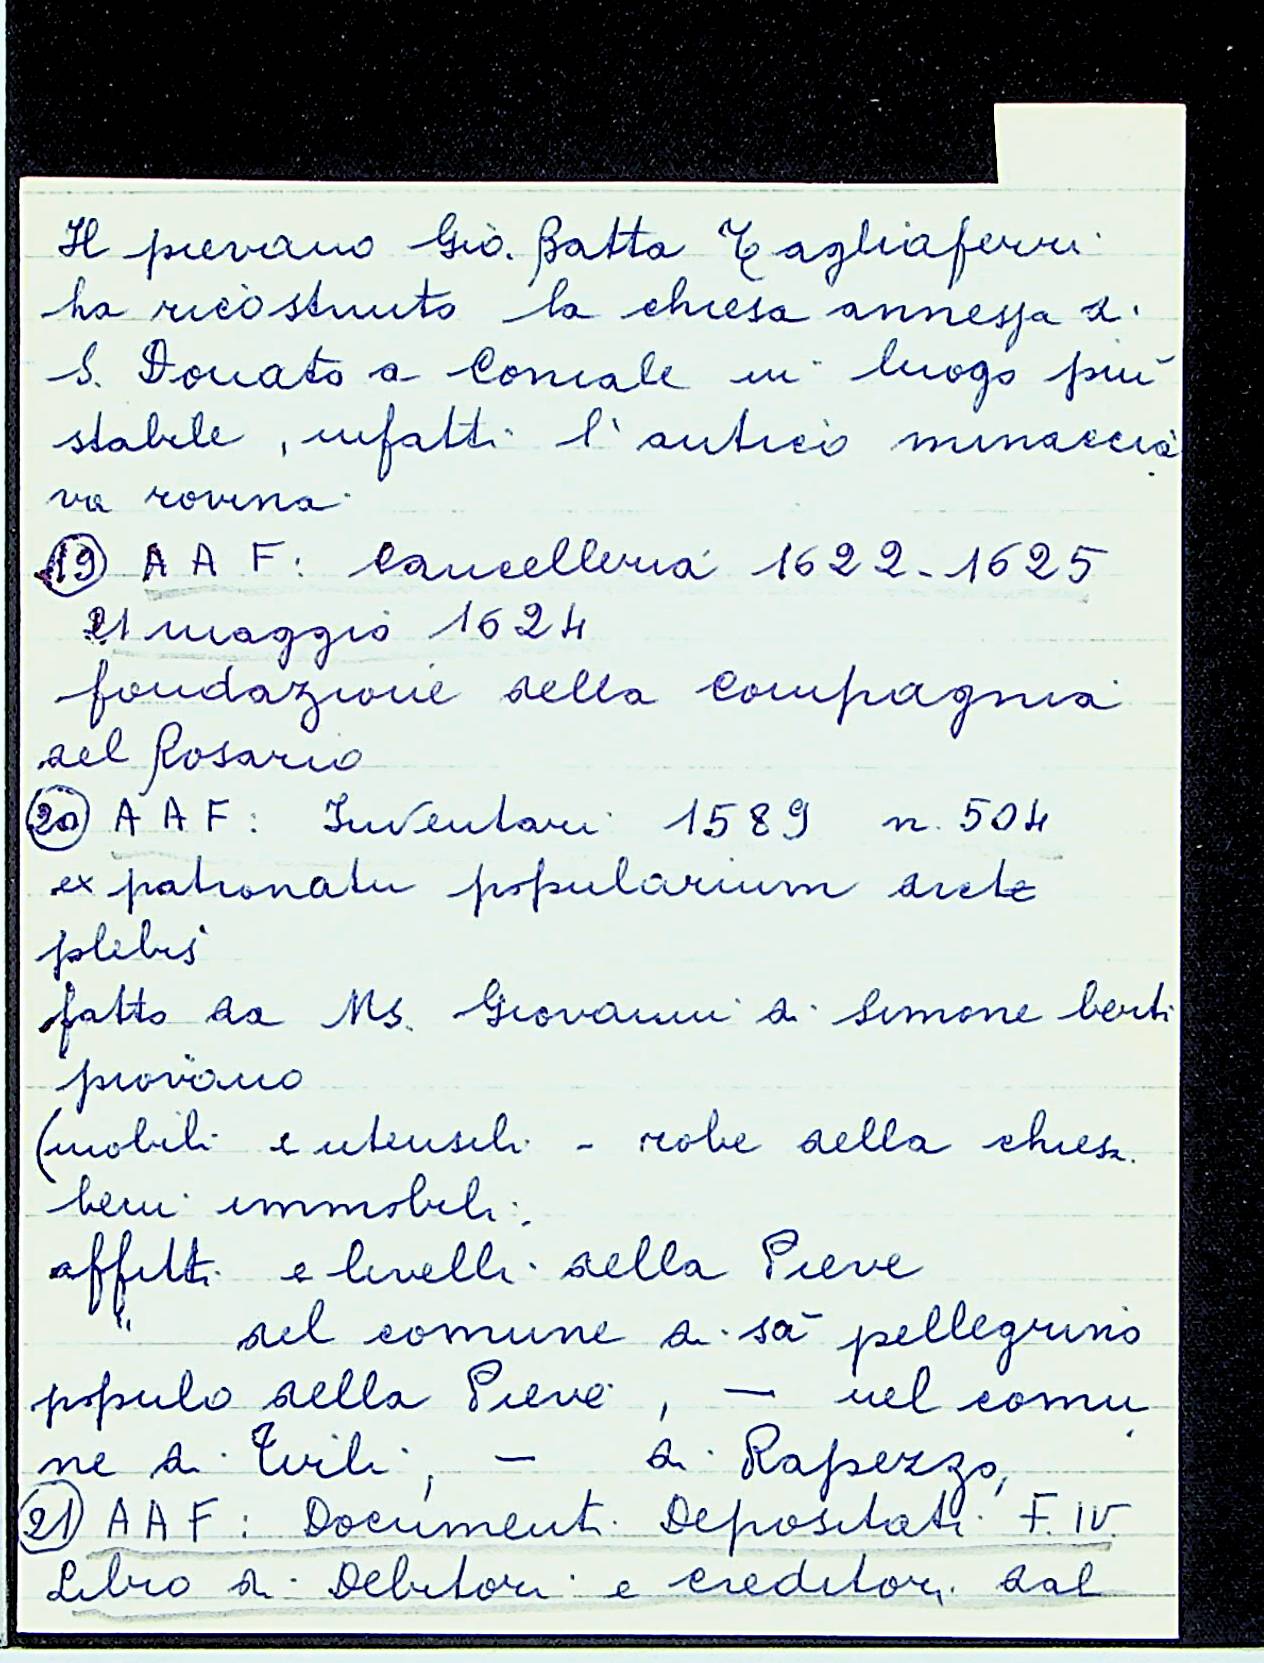 Il pievano Gio. Batta Tagliaferri
ha ricostruito la chiesa annessa di
S. Donato a Corniale in luogo più
stabile, infatti l'antico minaccia
va rovina
(19) AAF: Cancelleria 1622-1625
21 maggio 1624
fondazione della Compagnia
del Rosario
(20) AAF: Inventari 1589 n. 504
ex patronatu popularium dicte
plebis
fatto da Ms. Giovanni di Simone berti
piovano
(mobili e utensili - robe della chiesa
beni immobili,
affitti e livelli della Pieve
" del comune di sã pellegrino
populo della Pieve, — nel comu
ne di Tirli, — di Rapezzo,
(21) AAF: Documenti Depositati F. IV.
Libro di Debitori e creditori dal